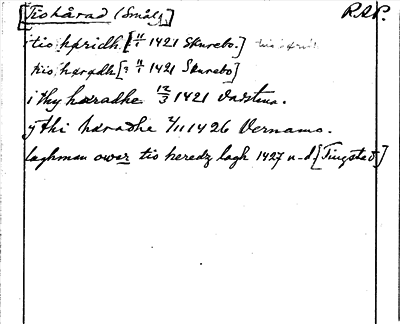 [Tiohärad (Smål.)] RAP.
i tio hæridh. [11/1 1421 Skurebo.]
tiio hærædh [? 11/1 1421 Skurebo]
i thy hæradhe 12/3 1421 Vadstena.
y thi hæradhe 2/11 1426 Vernamo.
laghman ower tio heredz lagh 1427 u-d. [Tingstad]